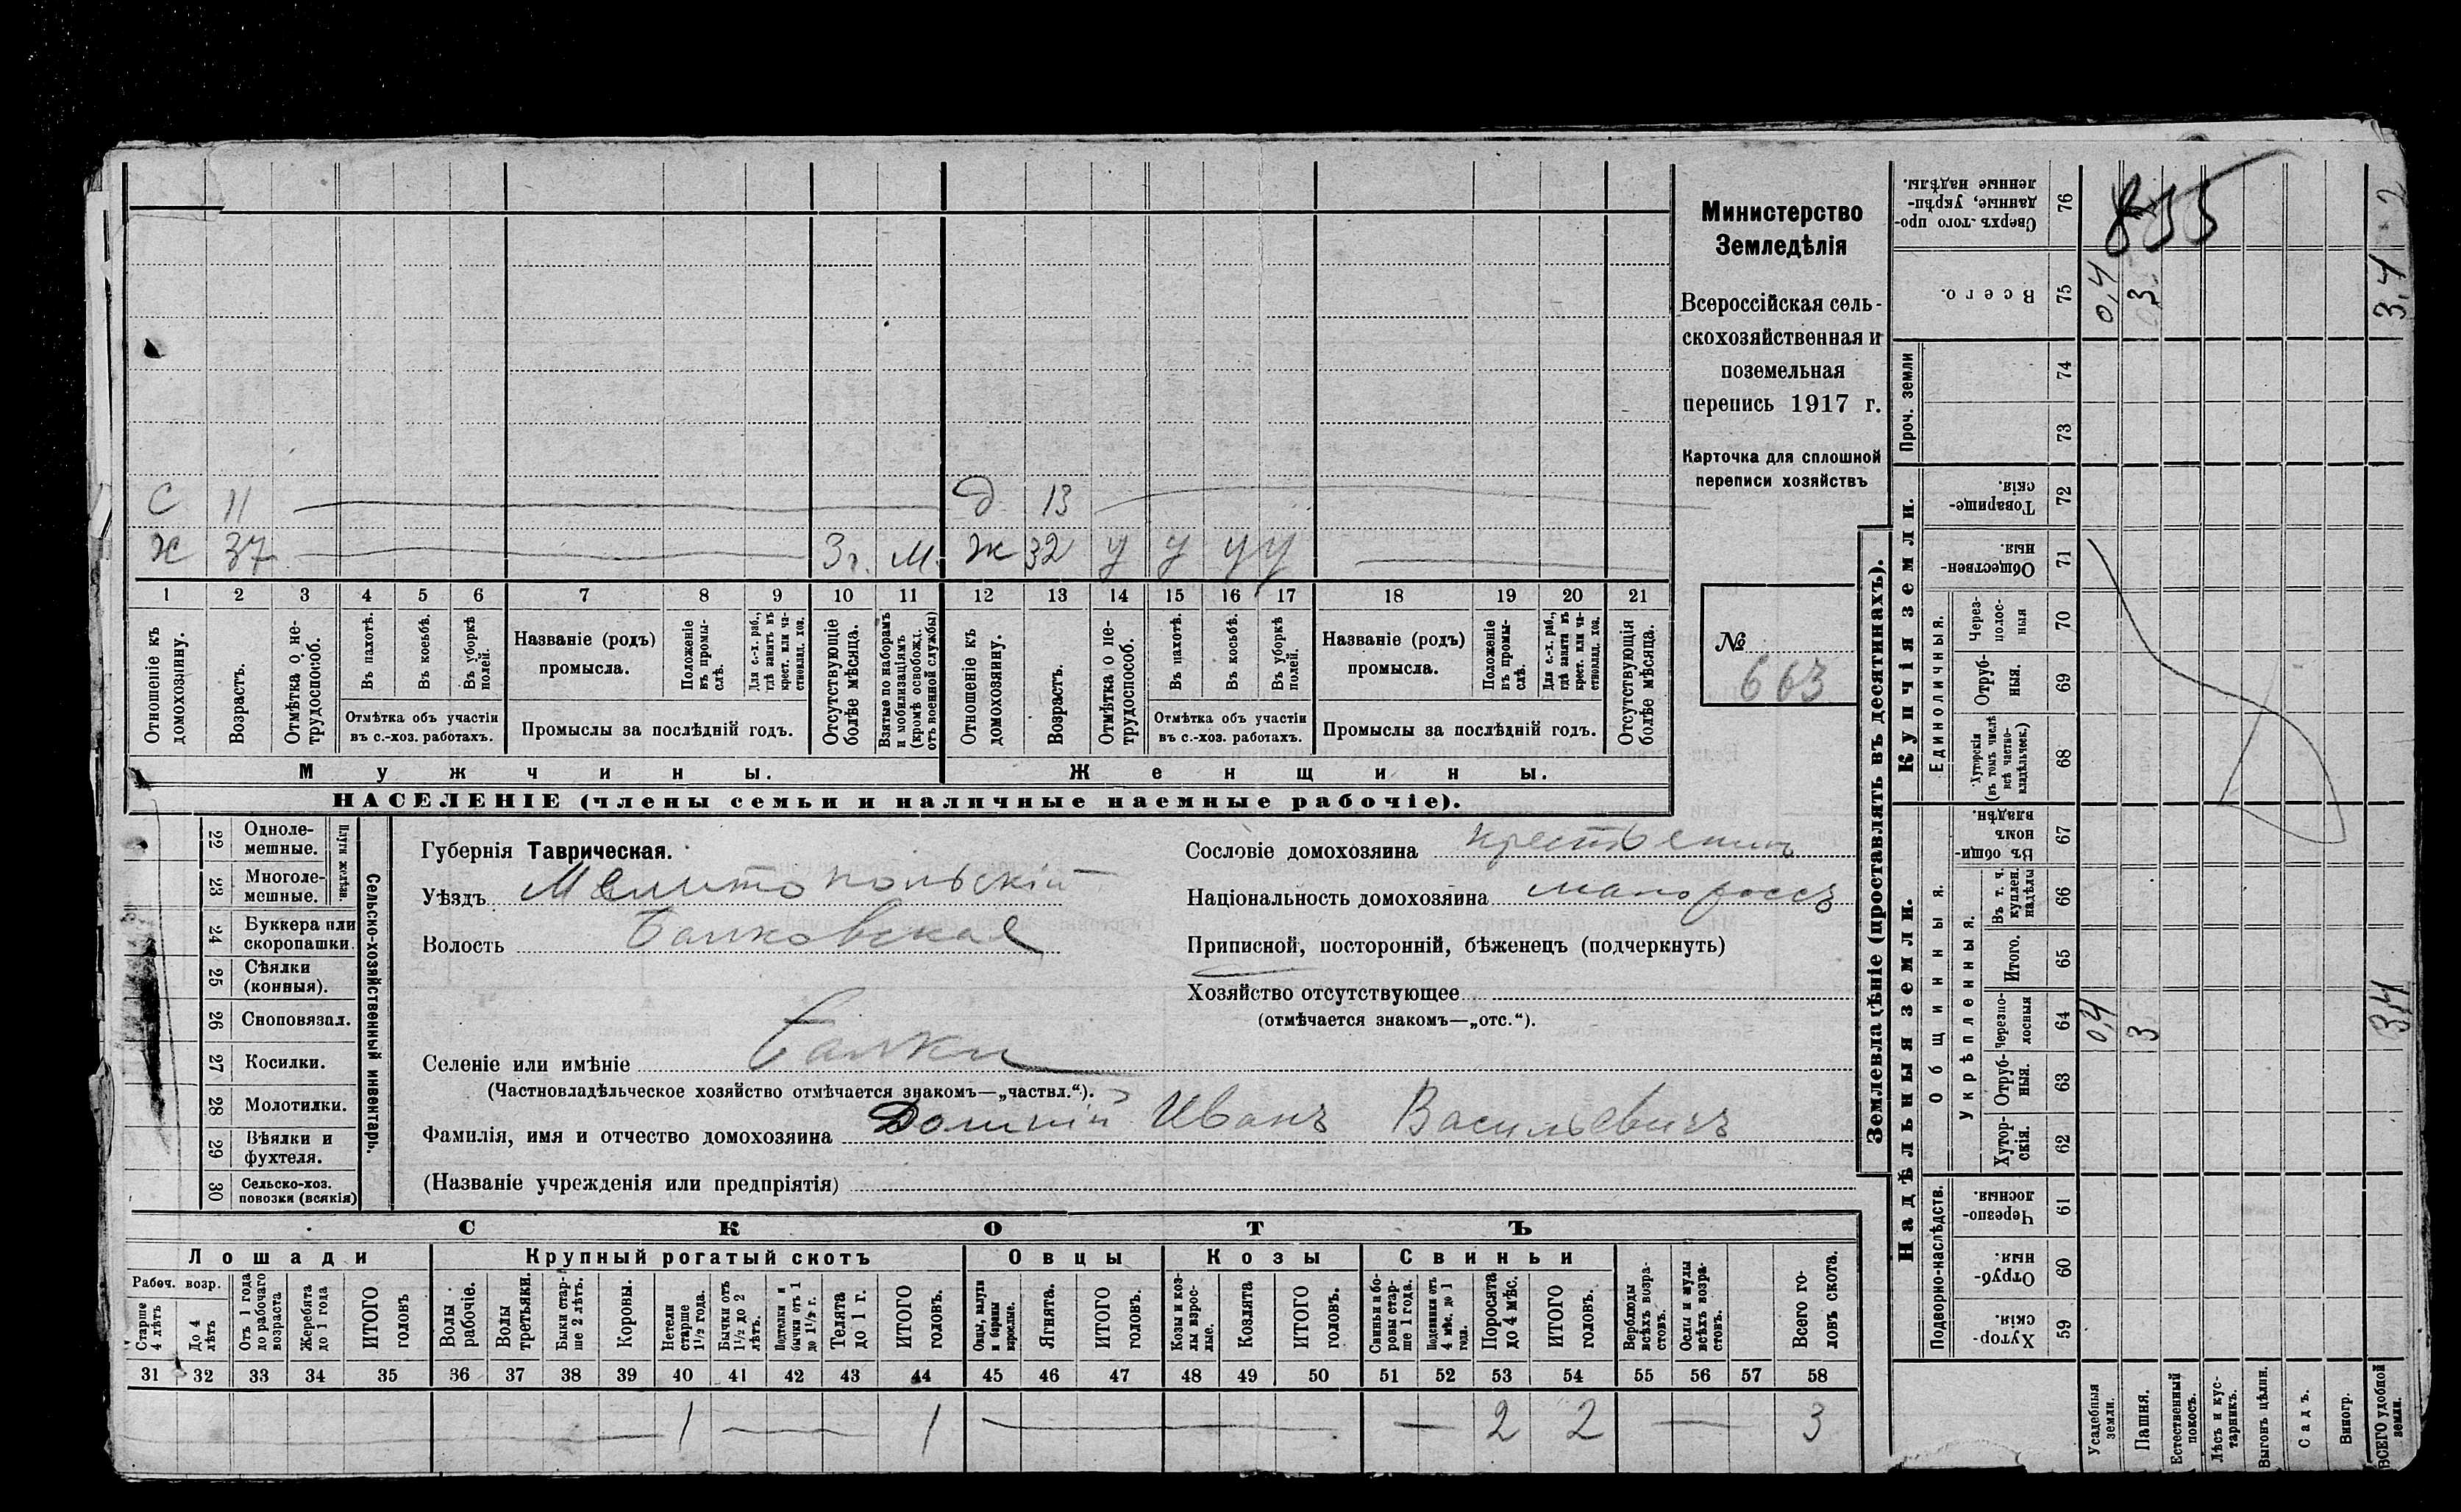 С 11 Д 13
Х 37 3 г. М. Ж 32 У У У У
1 2 3 4 5 6 7 8 9 10 11 12 13 14 15 16 17 18 19 20 21
Отношеніе къ домохозяину.
Возрастъ.
Отмѣтка о не-
трудоспособ.
Въ пахотѣ.
Въ косьбѣ.
Въ уборкѣ полей.
Отмѣтка объ участіи
въ с.-хоз. работахъ.
Названіе (родъ)
промысла.
Положеніе
въ промы-
слѣ.
Для с.-х. раб.,
гдѣ занятъ въ
крест. или ча-
стновлад. хоз.
Промыслы за послѣдній годъ.
Отсутствующіе
болѣе мѣсяца.
Взятые по наборамъ
и мобилизаціямъ
(кромѣ освобожд.
отъ военной службы)
Отношеніе къ
домохозяину.
Возрастъ.
Отмѣтка о не-
трудоспособ.
Въ пахотѣ.
Въ косьбѣ.
Въ уборкѣ
полей.
Отмѣтка объ участіи
въ с.-хоз. работахъ.
Названіе (родъ)
промысла.
Положеніе
въ промы-
слѣ.
Для с.-х. раб.,
гдѣ занята въ
крест. или ча-
стновлад. хоз.
Промыслы за послѣдній годъ.
Отсутствующія
болѣе мѣсяца.
Мужчины.
Женщины.
НАСЕЛЕНІЕ (члены семьи и наличные наемные рабочіе).
Министерство
Земледѣлія
Всероссійская сель-
скохозяйственная и
поземельная
перепись 1917 г.
Карточка для сплошной
переписи хозяйствъ
№
663
22 Одноле-
мешные.
23 Многоле-
мешные.
Плуги желѣзн.
24 Буккера или
скоропашки.
25 Сѣялки
(конныя).
26 Сноповязал.
27 Косилки.
28 Молотилки.
29 Вѣялки и
фухтеля.
30 Сельско-хоз.
повозки (всякія)
Сельско-хозяйственный инвентарь.
Губернія Таврическая.
Уѣздъ Мелитопольскій
Волость Балковская
Селеніе или имѣніе Балки
(Частновладѣльческое хозяйство отмѣчается знакомъ—„частвл.“).
Фамилія, имя и отчество домохозяина Иванъ Васильевичъ
(Названіе учрежденія или предпріятія)
Сословіе домохозяина крестьянинъ
Національность домохозяина малороссъ
Приписной, посторонній, бѣженецъ (подчеркнуть)
Хозяйство отсутствующее
(отмѣчается знакомъ—„отс.“).
СКОТЪ
Лошади
Крупный рогатый скотъ
Овцы
Козы
Свиньи
Рабоч. возр.
Старше
4 лѣтъ
До 4
лѣтъ
Отъ 1 года
до рабочаго
возраста
Жеребята
до 1 года
ИТОГО
головъ
Волы
рабочіе.
Волы
третьяки.
Быки стар-
ше 2 лѣтъ.
Коровы.
Нетели
старше
1½ года.
Бычки отъ
1½ до 2
лѣтъ.
Подтелки и
бычки отъ 1
до 1½ г.
Телята
до 1 г.
ИТОГО
головъ.
Овцы, валухи
и бараны
взрослые.
Ягнята.
ИТОГО
головъ.
Козы и коз-
лы взрос-
лые.
Козлята
ИТОГО
головъ.
Свиньи и бо-
ровы стар-
ше 1 года.
Подсвинки отъ
4 мѣс. до 1
года.
Поросята
до 4 мѣс.
ИТОГО
головъ.
Верблюды
всѣхъ возра-
стовъ.
Ослы и мулы
всѣхъ возра-
стовъ.
Всего го-
ловъ скота.
31 32 33 34 35 36 37 38 39 40 41 42 43 44 45 46 47 48 49 50 51 52 53 54 55 56 57 58
1 1 2 2 3
Землевладѣніе (проставлять въ десятинахъ).
Надѣльныя земли.
Купчія земли.
Проч. земли
Подворно-наслѣдств.
Общинныя.
Укрѣпленныя.
Единоличныя.
Хутор-
скія. 59
Отруб-
ныя. 60
Черезпо-
лосныя. 61
Хутор-
скія. 62
Отруб-
ныя. 63
Черезпо-
лосныя 64
Итого. 65
Въ т. ч.
куплен.
надѣлы 66
Въ общин-
номъ
владѣн. 67
Хуторскія
(въ томъ числѣ
всѣ частно-
владѣльческ.) 68
Отруб-
ныя. 69
Через-
полос-
ныя 70
Обществен-
ныя. 71
Товарище-
скія. 72
73
74
Всего. 75
Сверхъ того про-
данные, укрѣп-
ленные надѣлы. 76
855
0,4
3
3,4
0,4
3
3,4
Усадебныя
земли.
Пашня.
Естественный
покосъ.
Лѣсъ и кус-
тарникъ.
Выгонъ цѣлин.
Садъ.
Виногр.
ВСЕГО удобной
земли.